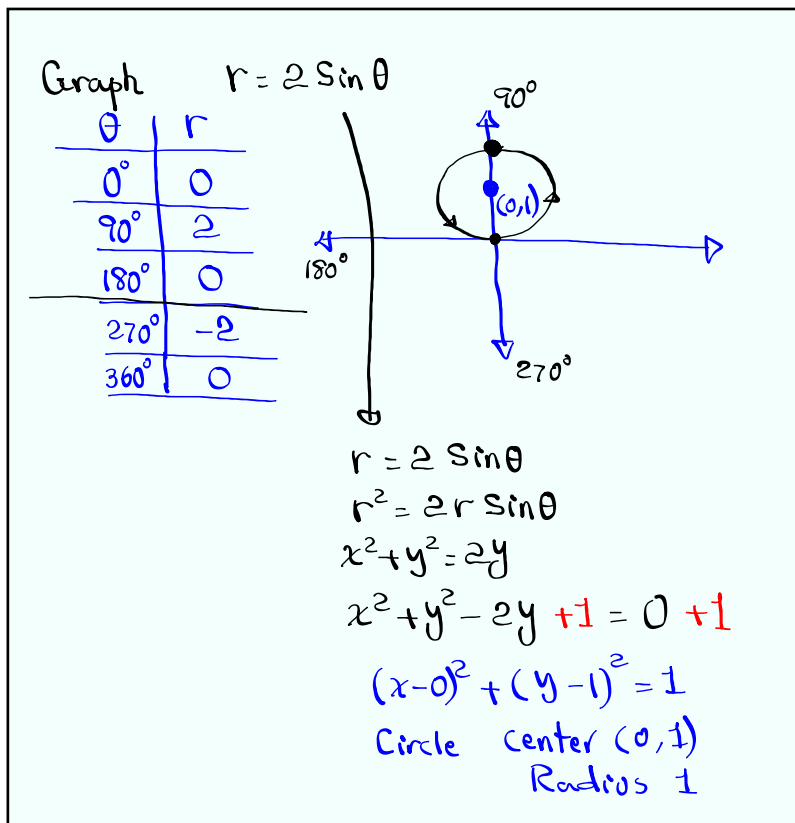 Graph r = 2 Sin θ
θ r
0° 0
90° 2
180° 0
270° -2
360° 0
90°
(0,1)
180°
270°
r = 2 Sin θ
r² = 2 r Sin θ
x² + y² = 2y
x² + y² - 2y +1 = 0 +1
(x-0)² + (y-1)² = 1
Circle center (0,1)
Radius 1